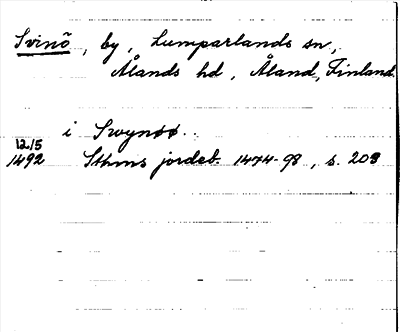 Svinö, by, Lumparlands sn,
Ålands hd, Åland, Finland.
i Swynöö.
12/5
1492 Sthms jordeb. 1474-98, s. 203